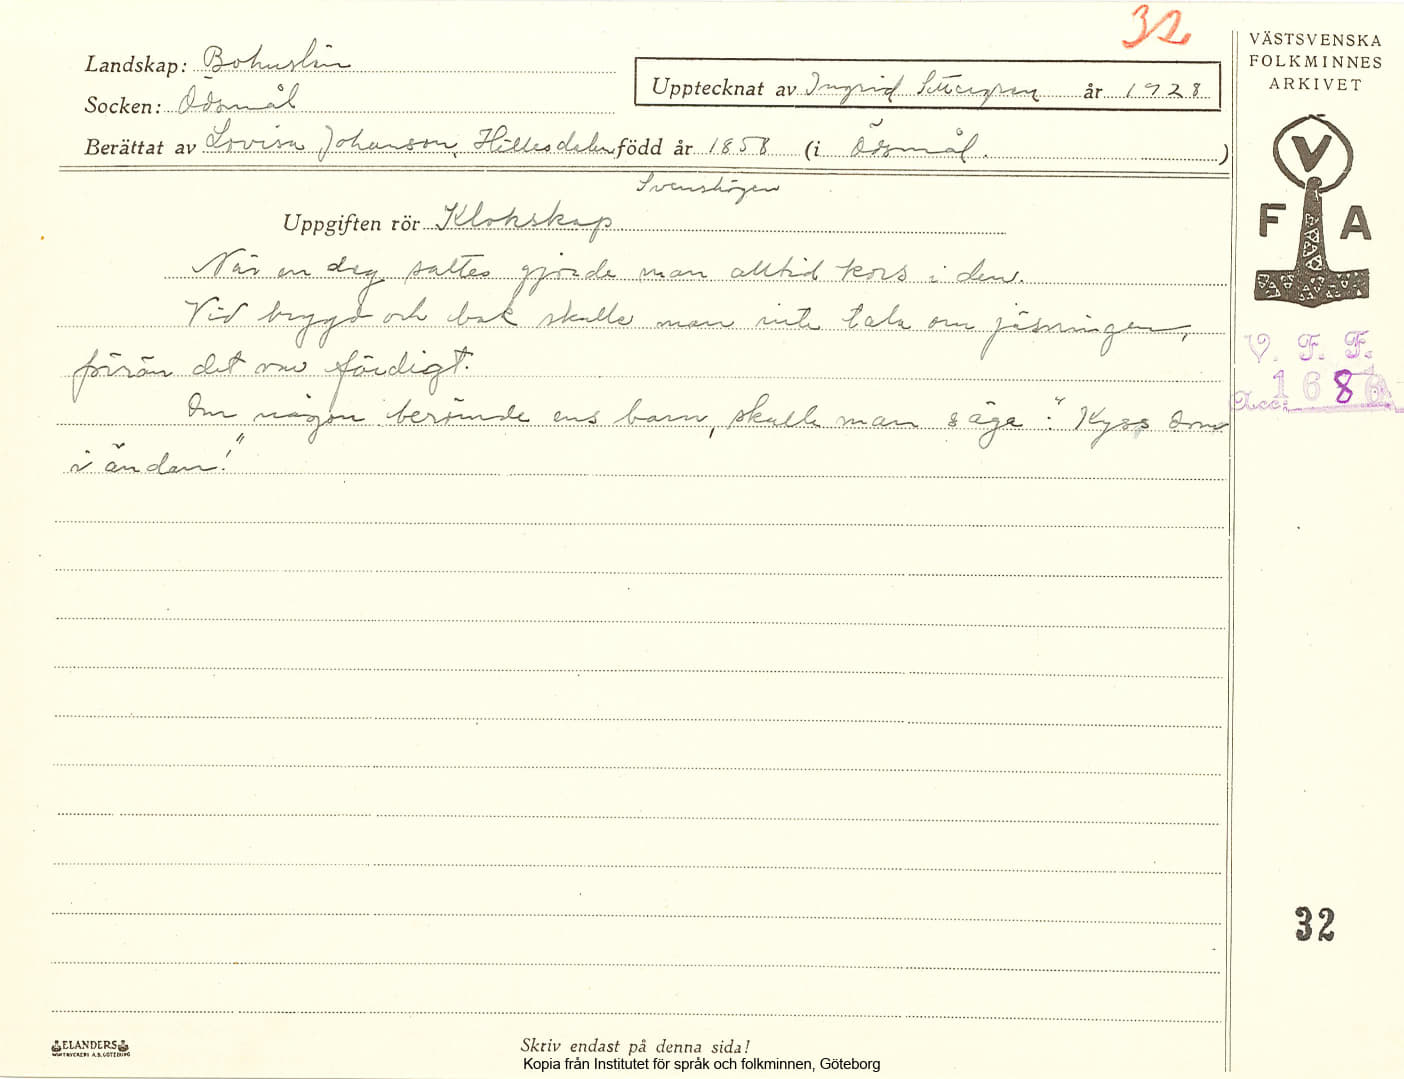 32
Landskap: Bohuslän
Socken: Ödsmål
Upptecknat av Ingrid år 1928
Berättat av Lovisa Johanson, Hillesdalen född år 1858 (i Ödsmål. )
Svenshögen
Uppgiften rör Klokskap
När en deg sattes gjorde man alltid kors i den.
Vid brygd och bak skulle man inte tala om jäsningen,
förrän det var färdigt.
Om någon berömde ens barn, skulle man säga: "Kyss dom
i ändan!"
VÄSTSVENSKA
FOLKMINNES
ARKIVET
V
F A
V. F. F.
Acc: 1686
32
ELANDERS
Skriv endast på denna sida!
Kopia från Institutet för språk och folkminnen, Göteborg